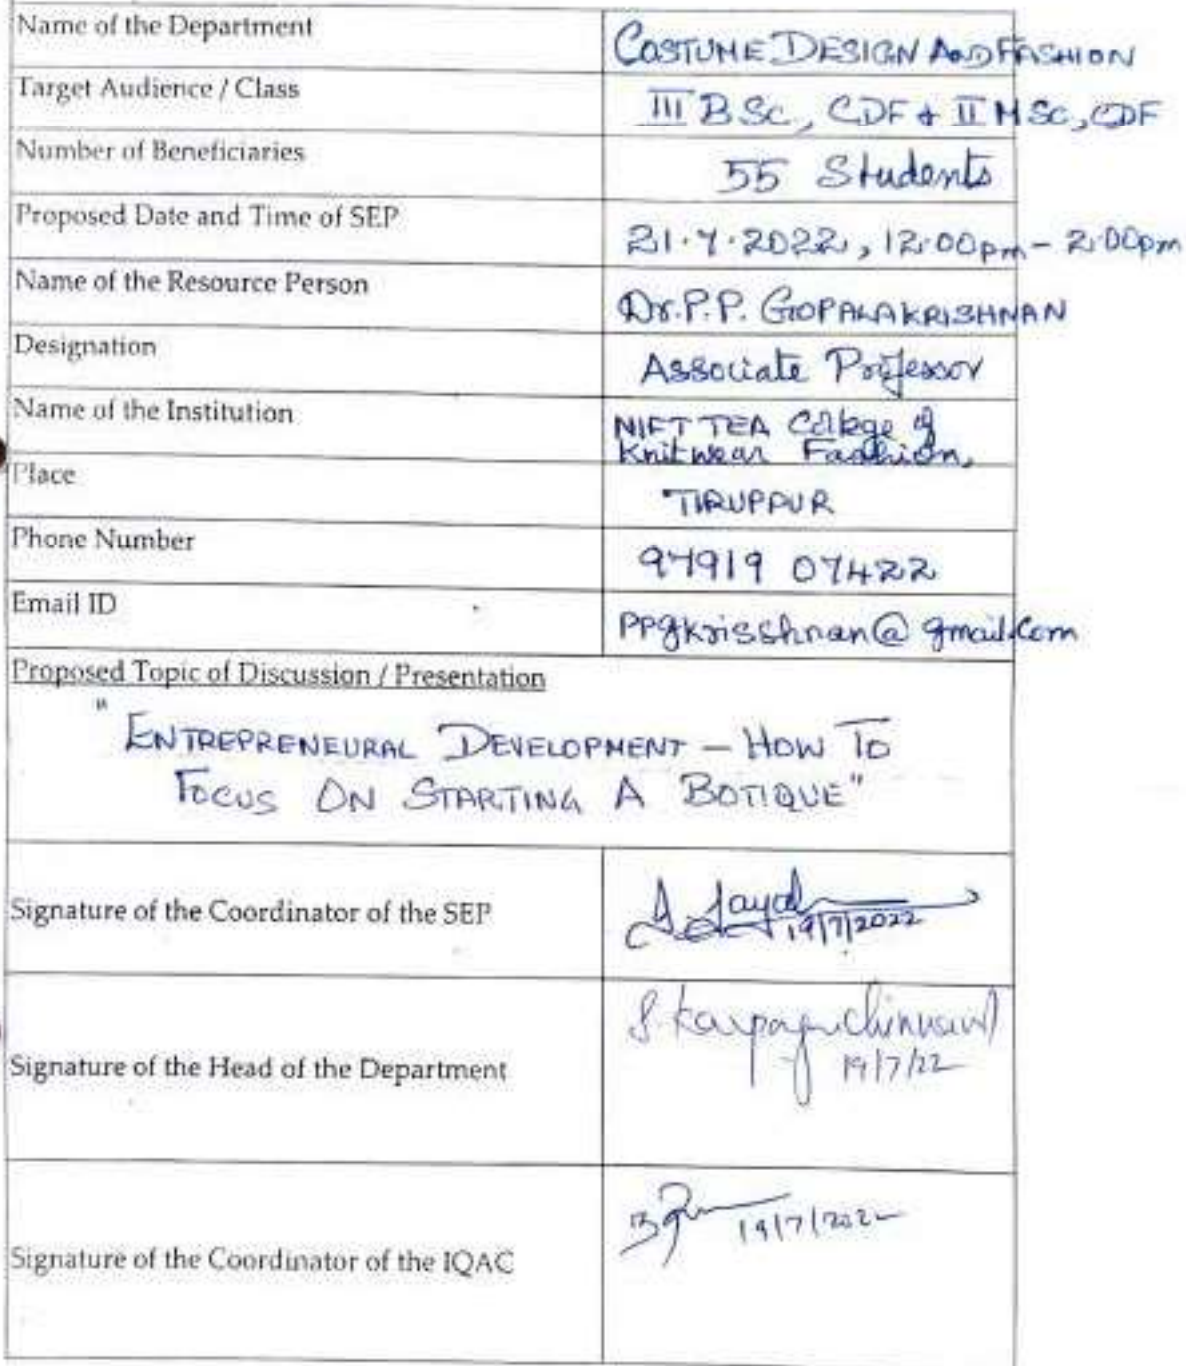 Name of the Department COSTUME DESIGN AND FASHION
Target Audience / Class III B Sc, CDF & II M Sc, CDF
Number of Beneficiaries 55 Students
Proposed Date and Time of SEP 21.7.2022, 12:00pm - 2:00pm
Name of the Resource Person Dr. P.P. GOPALAKRISHNAN
Designation Associate Professor
Name of the Institution NIFT TEA College of
Knitwear Fashion,
Place TIRUPPUR
Phone Number 97919 07422
Email ID ppgkrisshnan@gmail.com
Proposed Topic of Discussion / Presentation
"ENTREPRENEURAL DEVELOPMENT – HOW TO
FOCUS ON STARTING A BOTIQUE"
Signature of the Coordinator of the SEP
19/7/2022
Signature of the Head of the Department
19/7/22
Signature of the Coordinator of the IQAC
19/7/2022